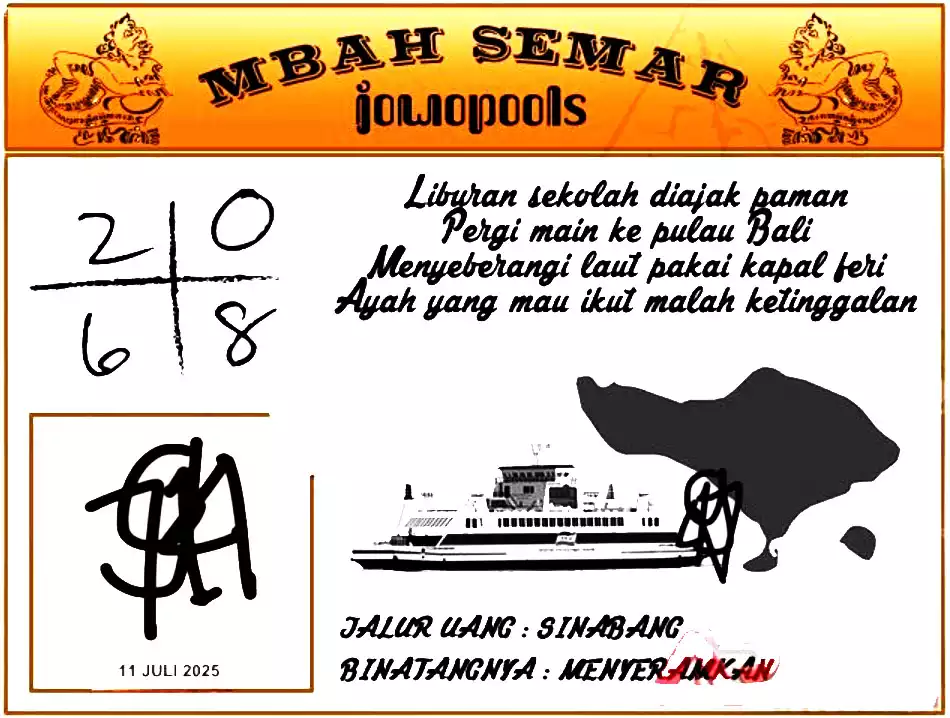 MBAH SEMAR
jowopools
2 0
6 8
Liburan sekolah diajak paman
Pergi main ke pulau Bali
Menyeberangi laut pakai kapal feri
Ayah yang mau ikut malah ketinggalan
11 JULI 2025
JALUR UANG : SINABANG
BINATANGNYA : MENYERAMKAN